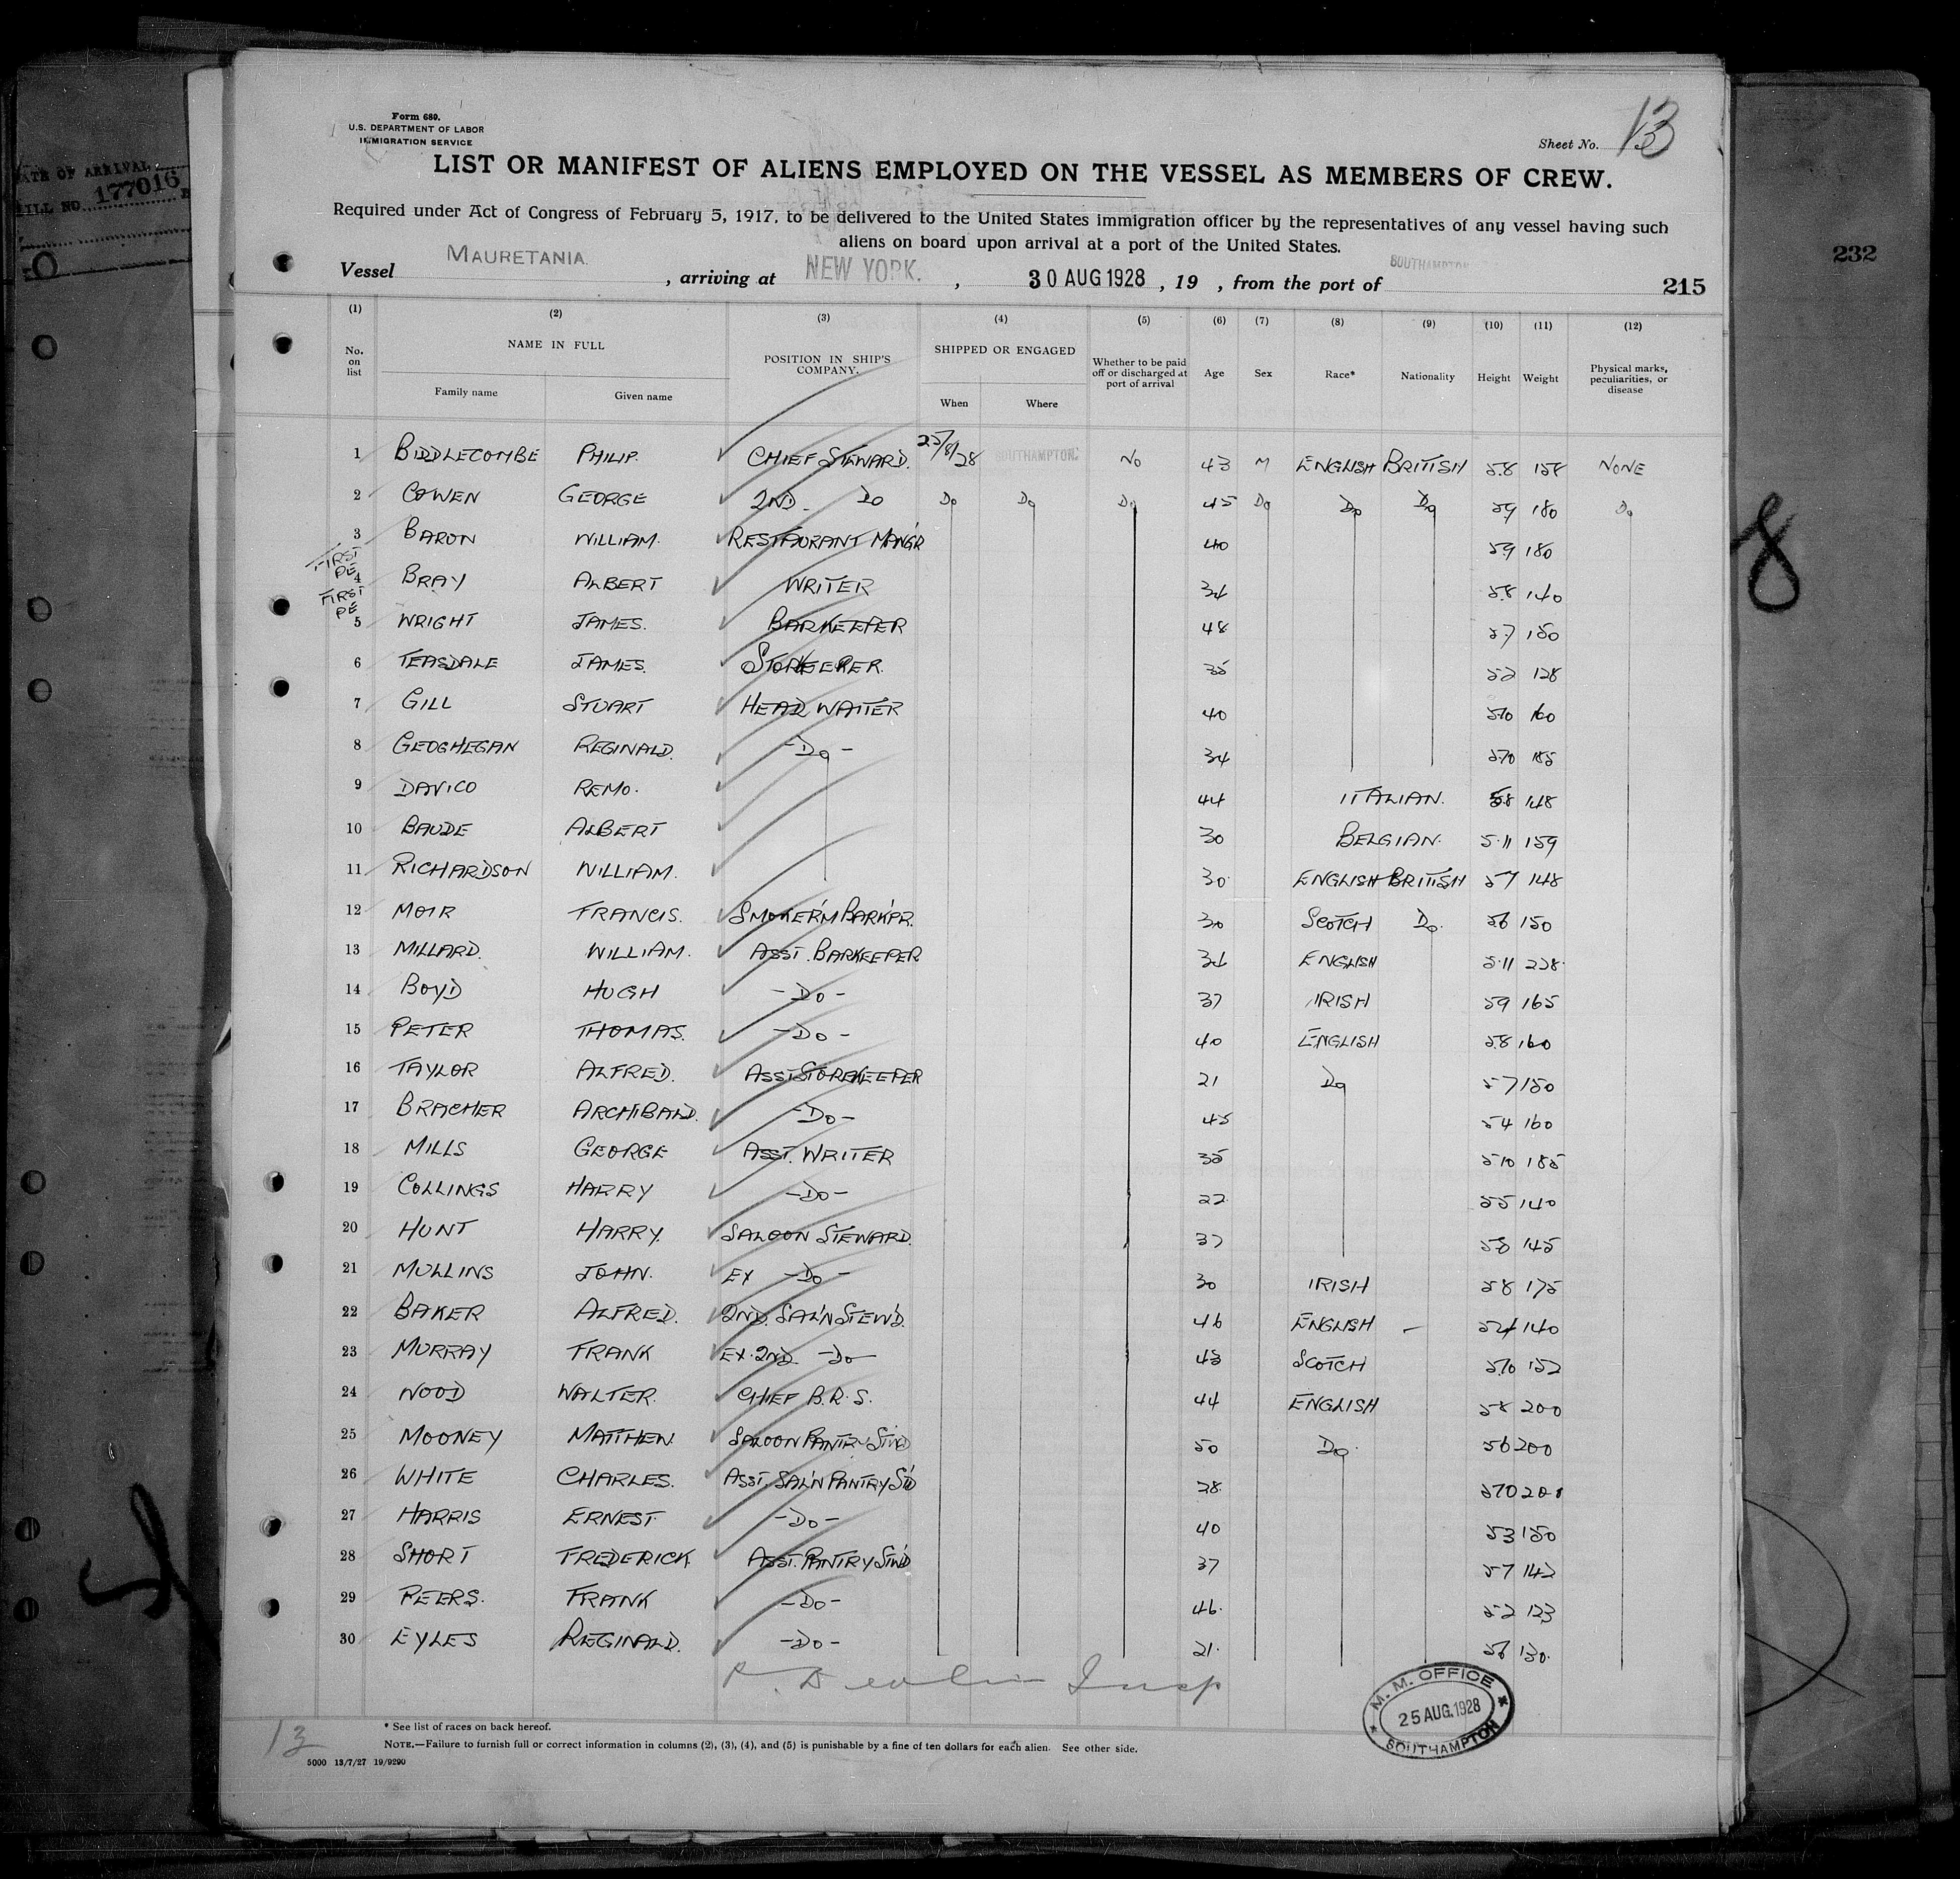 Form 680.
U.S. DEPARTMENT OF LABOR
IMMIGRATION SERVICE
Sheet No. 13
LIST OR MANIFEST OF ALIENS EMPLOYED ON THE VESSEL AS MEMBERS OF CREW.
Required under Act of Congress of February 5, 1917, to be delivered to the United States immigration officer by the representatives of any vessel having such
aliens on board upon arrival at a port of the United States.
Vessel MAURETANIA , arriving at NEW YORK. , 30 AUG 1928 , 19 , from the port of SOUTHAMPTON 215
(1) (2) (3) (4) (5) (6) (7) (8) (9) (10) (11) (12)
No. on list NAME IN FULL Family name Given name POSITION IN SHIP'S COMPANY. SHIPPED OR ENGAGED When Where Whether to be paid off or discharged at port of arrival Age Sex Race* Nationality Height Weight Physical marks, peculiarities, or disease
1 BIDDLECOMBE PHILIP. CHIEF STEWARD. 25/8/28 SOUTHAMPTON. NO 43 M ENGLISH BRITISH 5.8 158 NONE
2 COWEN GEORGE 2ND. DO DO DO DO 45 DO DO DO 59 180 DO
3 BARON WILLIAM. RESTAURANT MANGR 40 5.9 180
FIRST PE
4 BRAY ALBERT WRITER 34 5.8 140
FIRST PE
5 WRIGHT JAMES. BARKEEPER 48 5.7 150
6 TEASDALE JAMES. STOREKEEPER. 35 52 128
7 GILL STUART HEAD WAITER 40 5.10 160
8 GEOGHEGAN REGINALD. -DO- 34 5.10 185
9 DAVICO REMO. 44 ITALIAN. 5.8 148
10 BAUDE ALBERT 30 BELGIAN. 5.11 159
11 RICHARDSON WILLIAM. 30 ENGLISH BRITISH 57 148
12 MOIR FRANCIS. SMOKE'M BARK'PR. 30 SCOTCH DO. 56 150
13 MILLARD. WILLIAM. ASST. BARKEEPER 34 ENGLISH 5.11 228
14 BOYD HUGH -DO- 37 IRISH 59 165
15 PETER THOMAS. -DO- 40 ENGLISH 5.8 160
16 TAYLOR ALFRED. ASST STOREKEEPER 21 DO 57 150
17 BRACHER ARCHIBALD. -DO- 45 54 160
18 MILLS GEORGE ASST. WRITER 35 5.10 185
19 COLLINGS HARRY -DO- 22 55 140
20 HUNT HARRY. SALOON STEWARD. 37 58 145
21 MULLINS JOHN. EX -DO- 30 IRISH 58 175
22 BAKER ALFRED. 2ND. SAL'N STEW'D. 46 ENGLISH - 54 140
23 MURRAY FRANK EX. 2ND. -DO- 45 SCOTCH 5.10 152
24 WOOD WALTER. CHIEF B.R.S. 44 ENGLISH 58 200
25 MOONEY MATTHEW. SALOON PANTRY STWD 50 DO 56 200
26 WHITE CHARLES. ASST. SAL'N PANTRY S'D 28 510 201
27 HARRIS ERNEST -DO- 40 53 150
28 SHORT FREDERICK ASST. PANTRY STWD 37 57 142
29 PEERS. FRANK -DO- 46. 52 133
30 EYLES REGINALD. -DO- 21. 56 130.
Insp
M. M. OFFICE
25 AUG. 1928
SOUTHAMPTON
13
* See list of races on back hereof.
NOTE.—Failure to furnish full or correct information in columns (2), (3), (4), and (5) is punishable by a fine of ten dollars for each alien. See other side.
5000 13/7/27 19/9290
DATE OF ARRIVAL
BILL NO. 177016
232
8